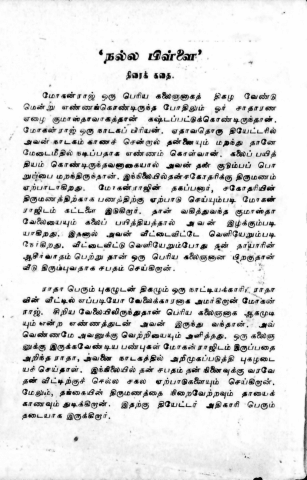 ‘நல்ல பிள்ளை’
திரைக் கதை.
மோகன்ராஜ் ஒரு பெரிய கலைஞனாகத் திகழ வேண்டு
மென்று எண்ணங்கொண்டிருந்த போதிலும் ஓர் சாதாரண
ஏழை குமாஸ்தாவாகத்தான் கஷ்டப்பட்டுக்கொண்டிருந்தான்.
மோகன்ராஜ் ஒரு நாடகப் பிரியன். ஏதாவதொரு தியேட்டரில்
அவன் நாடகம் காணச் சென்றால் தன்னையும் மறந்து தானே
மேடைமீதில் நடிப்பதாக எண்ணம் கொள்வான். கலைப் பயித்
தியம் கொண்டிருந்தவனாகையால் அவன் தன் குடும்பப் பொ
றுப்பை மறந்திருந்தான். இந்நிலையில் தன்சகோதரிக்கு திருமணம்
ஏற்பாடாகிறது. மோகன்ராஜின் தகப்பனார், சகோதரியின்
திருமணத்திற்காக பணத்திற்கு ஏற்பாடு செய்யும்படி மோகன்
ராஜிடம் கட்டளை இடுகிறார். தான் வகித்துவந்த குமாஸ்தா
வேலையையும் கலைப் பயித்தியத்தால் அவன் இழக்கும்படி
யாகிறது. இதனால் அவன் வீட்டைவிட்டே வெளியேறும்படி
நேர்கிறது. வீட்டைவிட்டு வெளியேறும்போது தன் தாயாரின்
ஆசீர்வாதம் பெற்று தான் ஒரு பெரிய கலைஞனான பிறகுதான்
வீடு திரும்புவதாக சபதம் செய்கிறான்.
ராதா பெரும் புகழுடன் திகழும் ஒரு நாட்டியக்காரி. ராதா
வின் வீட்டில் எப்படியோ வேலைக்காரனாக அமர்கிறான் மோகன்
ராஜ். சிறிய வேலையிலிருந்துதான் பெரிய கலைஞனாக ஆகமுடி
யும் என்ற எண்ணத்துடன் அவன் இருந்து வந்தான். அவ்
வெண்ணமே அவனுக்கு வெற்றியையும் அளித்தது. ஒரு கலைஞ
னுக்கு இருக்கவேண்டிய பண்புகள் மோகன்ராஜிடம் இருப்பதை
அறிந்த ராதா, அவனை நாடகத்தில் அறிமுகப்படுத்தி புகழடை
யச் செய்தாள். இந்நிலையில் தன் சபதம் தன் நினைவுக்கு வரவே
தன் வீட்டிற்குச் செல்ல சகல ஏற்பாடுகளையும் செய்கிறான்.
மேலும், தங்கையின் திருமணத்தை நிறைவேற்றவும் தாயைக்
காணவும் துடிக்கிறான். இதற்கு தியேட்டர் அதிகாரி பெரும்
தடையாக இருக்கிறார்.